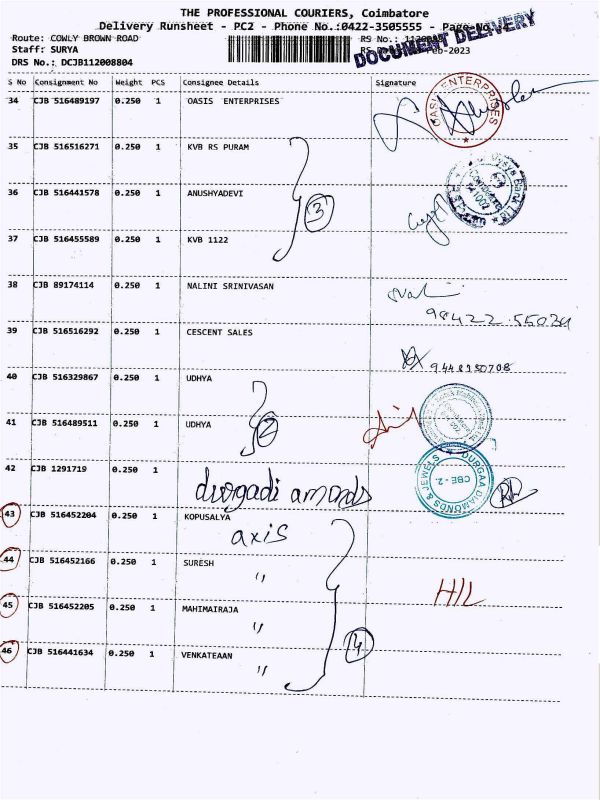 THE PROFESSIONAL COURIERS, Coimbatore
Delivery Runsheet - PC2 - Phone No.:0422-3505555 - Page No.
DOCUMENT DELIVERY
Route: COWLY BROWN ROAD
RS No.:
Staff: SURYA
Feb-2023
DRS No.: DCJB112008804
S No Consignment No Weight PCS Consignee Details Signature
34 CJB 516489197 0.250 1 OASIS ENTERPRISES
ENTERPRISES
35 CJB 516516271 0.250 1 KVB RS PURAM
36 CJB 516441578 0.250 1 ANUSHYADEVI
3
37 CJB 516455589 0.250 1 KVB 1122
38 CJB 89174114 0.250 1 NALINI SRINIVASAN
39 CJB 516516292 0.250 1 CESCENT SALES
40 CJB 516329867 0.250 1 UDHYA
41 CJB 516489511 0.250 1 UDHYA
2
42 CJB 1291719 0.250 1
durgadi amonds
DURGAA DIAMONDS & JEWELS
CBE - 2.
43 CJB 516452204 0.250 1 KOPUSALYA
axis
44 CJB 516452166 0.250 1 SURESH
"
HIL
45 CJB 516452205 0.250 1 MAHIMAIRAJA
"
4
46 CJB 516441634 0.250 1 VENKATEAAN
"